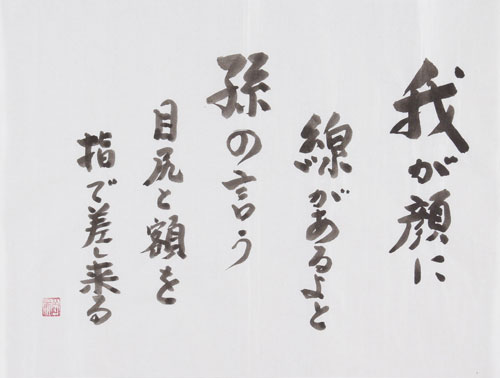 我が顔に
線があるよと
孫の言う
目尻と額を
指で差し来る